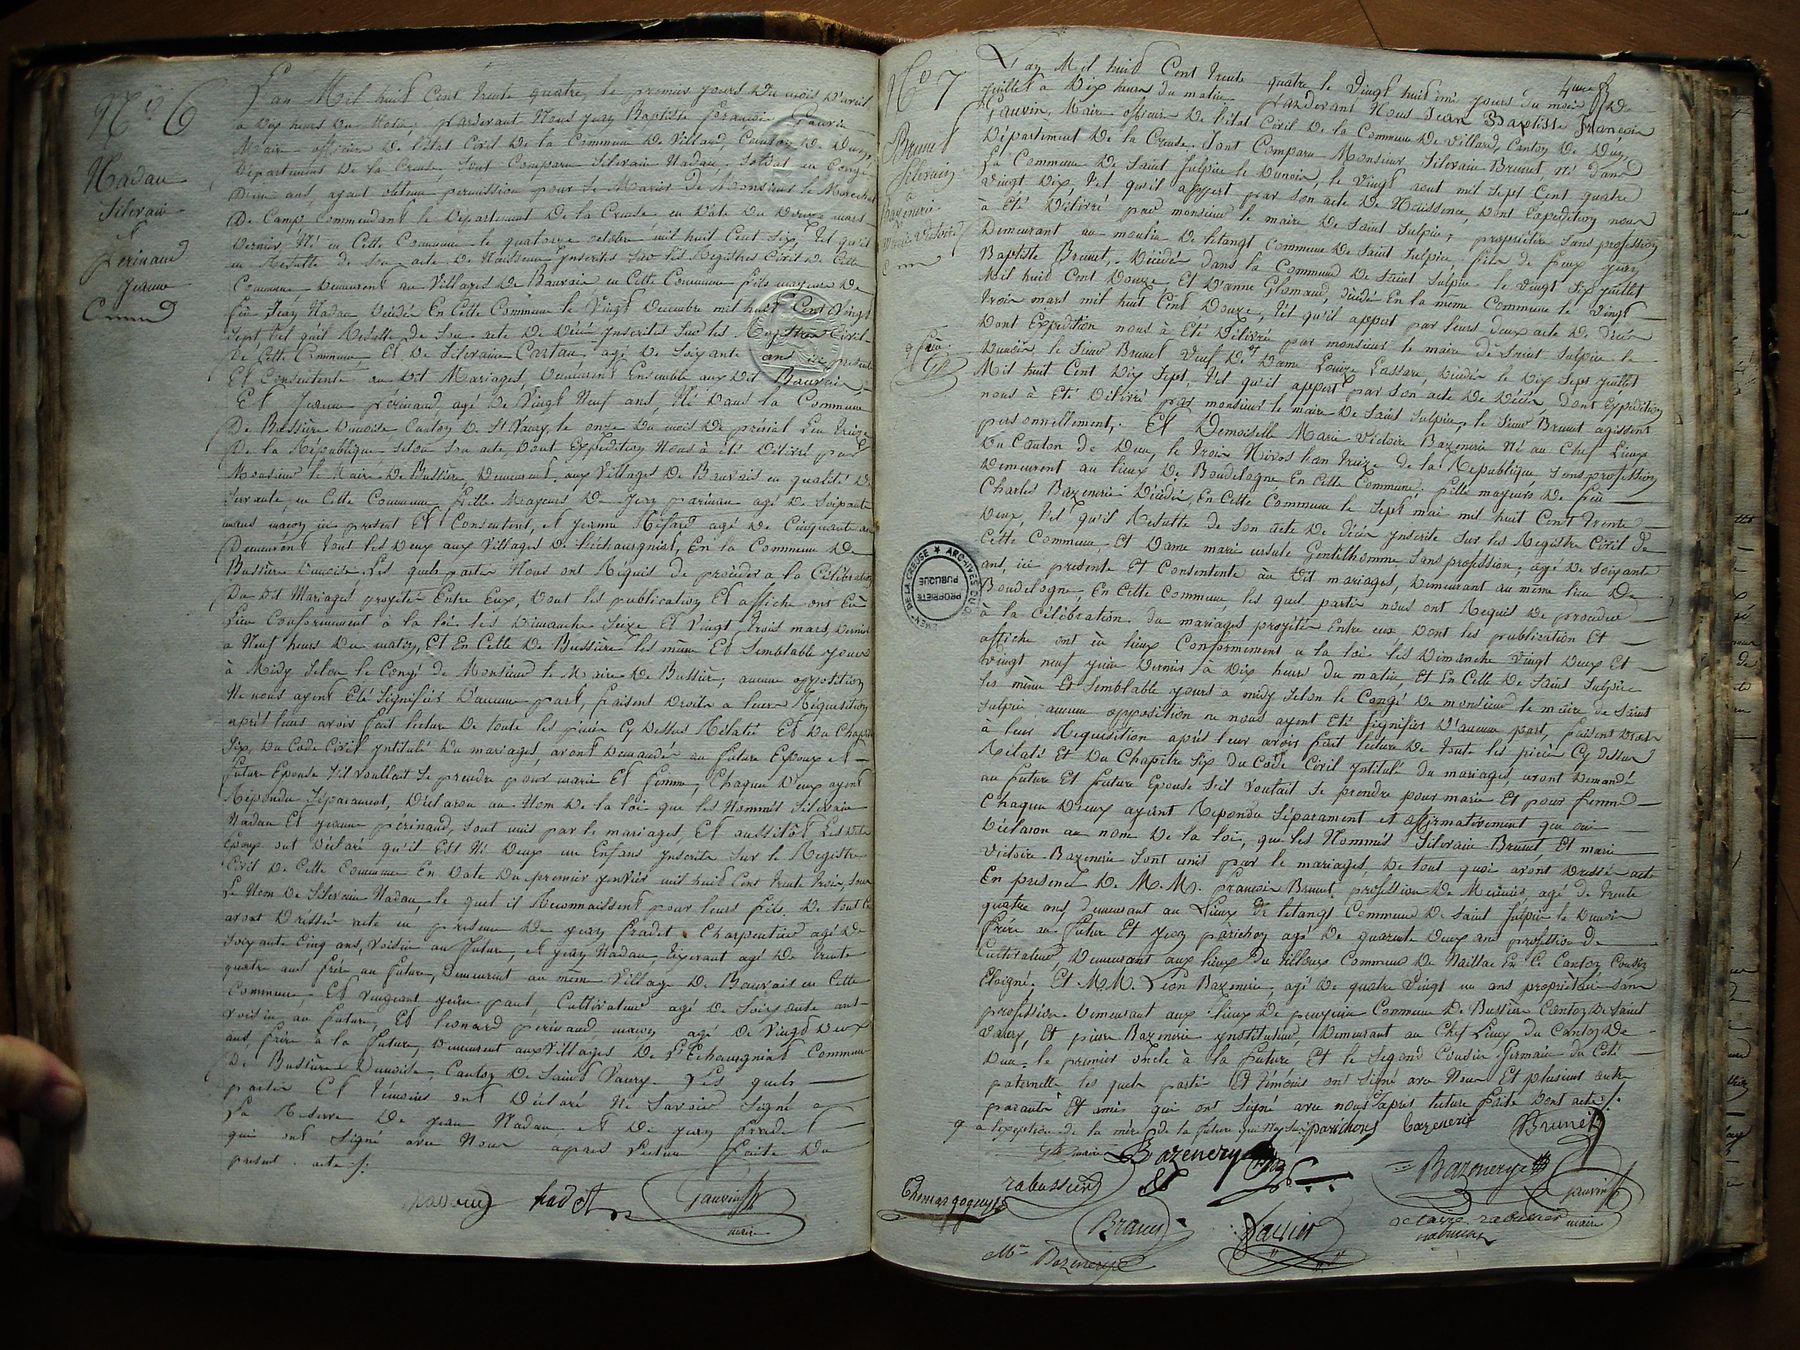 N.o 6
Nadau
Silvain
&
perinaud
jeanne
L'an Mil huit Cent trente quatre, le premier jours Du mois D'avril
a Dix heurs Du Matin, pardevant Nous jean Baptiste françois Gauvin
Maire officier De l'état Civil De la Commune De Villard, Canton De Dun,
Département De la Creuse, sont Comparu Silvain Nadau, soldat en Congé
D'un ans, ayant obtenu permission pour se Marié De Monsieur le Marechal
De Camp Commendant le Département De la Creuse en Date Du Douze mars
Dernier Né en Cette Commune le quatorze octobre mil huit Cent Six, tel qu'il
en Résulte de son acte de Naissence ynscrites sur les Registres Civil De Cette
Commune Demeurent au Villages De Bauvais en Cette Commune fils majeure De
feu jean Nadau Décédé En Cette Commune le Vingt Décembre mil huit Cent Vingt
sept, tel qu'il Résulte de Son acte De Décé ynscrites sur les Registres Civil
De Cette Commune Et De Silvaine Cartau agé De Soixante ans ici presente
Et Consentente au Dit Mariages, Demeurent Ensemble aux Dit Bauvais,
Et Jeanne périnaud agé De Vingt Neuf ans, Né Dans la Commune
De Bussière Dunoise Canton De St Vaury, le onze Du mois De prérial L'en treize
De la République selon son acte, Dont Expédition Nous à été Délivré par
Monsieur le Maire De Bussière, Demeurent aux Villages De Bauvais en qualité De
servante, en Cette Commune fille Majeure De jean perinau agé De Soixante
ans maçon ici present Et Consentent, et jeanne agé De Cinquante ans
Demeurent tous les Deux aux Villages De l'échaurgniat, En la Commune De
Bussière Dunoise, Les quels parties Nous ont Réquis De procéder a la Célébration
Du Dit Mariages projetés Entre Eux, Dont les publication Et affiche ont Eû
Lieu Conformément à la loi les Dimanche Seize Et Vingt trois mars Dernier
a Neuf heurs Du matin, Et En Celle De Bussière les même Et Semblable jours
à Midy Selon le Congé De Monsieur le Maire De Bussière; aucune opposition
Ne nous ayent Eté Signifiés D'aucune part, faisent Droits a leur Réquisition
après leurs avoir fait lecture De toute les pièces Cy Dessus Rélatés Et Du Chapitre
Six, Du Code Civil yntitulé Du mariages, avont Demandés au future Epoux et
future Epouse s'il voullait Se prendre pour marie Et femme, Chaqun D'eux ayent
Répondu Séparament, Déclarons au Nom De la loi que les Nommés Silvain
Nadau Et jeanne périnaud, sont unis par le mariages, Et aussitôt Les Dits
Epoux ont Déclaré qu'il Est Né Deux un Enfans ynscrits Sur le Registre
Civil De Cette Commune En Date Du premier janvier mil huit Cent trente trois, sous
Le Nom De Silvain Nadau, le quel il Reconnaissent pour leurs fils. De tout Ce
avont Dressée acte en presence De jean fradet Charpentier agé De
Soixante Cinq ans, Voisin au future, et jean Nadau agé De trente
quatre ans frére au future, Demeurent au même Village De Bauvais en Cette
Commune, Et Cultivateur agé De Soixante ans
Voisin au future, Et Leonard périnaud maçon agé De Vingt Deux
ans, frére à la future, Demeurent aux Villages De L'Echaurgniat Commune
De Bussière Dunoise, Canton De Saint Vaury. Les quels
parties Et Témoins ont Déclaré Ne Savoir Signé a
La Reserve De jean Nadau et De jean fradet
qui ont Signé avec Nous après Lecture faite Du
present acte
Nadaud fradet Gauvin
maire
N.o 7
Brunet
Silvain
&
Bazenerie
Marie Victoire
L'an Mil huit Cent trente quatre le Vingt huit jours du mois De
juillet a Dix heurs Du matin pardevant Nous Jean Baptiste François
Gauvin, Maire officier De l'état Civil De la Commune De Villard, Canton De Dun,
Département De la Creuse. Sont Comparu Monsieur Silvain Brunet, né dans
La Commune De Saint Sulpice le Dunois, le Vingt aout mil Sept Cent quatre
Vingt Dix, tel qu'il appert par son acte De Naissence, Dont Expedition nous
à Eté Délivré par monsieur le maire De Saint Sulpice, propriétaire sans profession
Demeurant au moulin De letangt Commune De Saint Sulpice. fils De feux jean
Baptiste Brunet, Décédé dans la Commune De Saint Sulpice le Vingt Six juillet
Mil huit Cent Douze, Et D'anne Glomaud, Décédé En la même Commune le Vingt
trois mars mil huit Cent Douze, tel qu'il appert par leurs Deux acte De Décès
Dont Expedition nous à Eté Délivré par monsieur le maire De Saint Sulpice le
Dunois, le Sieur Brunet Veuf De Dame Louize Lassare, Décédée le Dix Sept juillet
Mil huit Cent Dix Sept, tel qu'il appert par son acte De Décès dont Expedition
nous à Eté Délivré par monsieur le maire De Saint Sulpice, le Sieur Brunet agissent
personnellement, Et Demoiselle Marie Victoire Bazenerie Né au Chef Lieux
Du Canton de Dun, le trois Nivos L'an treize De la République, Sans profession
Demeurent au lieux De Boudelogne En Cette Commune, fille majeure De feu
Charles Bazenerie Décédé, En Cette Commune le Sept mai mil huit Cent trente
Deux, tel qu'il Résulte De Son acte De Décès ynscrite Sur les Registre Civil De
Cette Commune, Et Dame marie ursule Gentilhomme Sans profession, agé De Soixante
ans, ici presente Et Consentente au Dit mariages, Demeurant au même lieu De
Boudelogne, En Cette Commune, les quel partie nous ont Requis De procéder
à la Célébration du mariages projetés Entre eux, Dont les publication Et
affiche ont eu lieux Conformement a la loi les Dimanche Vingt Deux Et
Vingt neuf juin Dernier à Dix heurs du matin, Et En Celle De Saint Sulpice
les même Et Semblable jours a midy Selon le Congé De monsieur le maire de Saint
Sulpice aucune opposition ne nous ayent Eté Signifiés D'aucune part, faisent Droit
à leur Requisition après leur avoir fait lecture De toute les pièces Cy Dessus
Relaté Et Du Chapitre Six Du Code Civil yntitulé Du mariages, avont Demandé
au future Et future Epouse S'il voulait Se prendre pour marie Et pour femme
Chaqun D'eux ayent Repondu Séparament et affirmativement que oui
Déclaron au nom De la loi, que les Nommés Silvain Brunet Et marie
Victoire Bazenerie Sont unis par le mariages, De tout quoi avont Dressé acte
En presence De M.M. françois Brunet profession De Meunier, agé de trente
quatre ans, Demeurant au Lieux De letangt Commune De Saint Sulpice le Dunois
frére au future Et jean parichon agé De quarente Deux ans profession De
Cultivateur Demeurant aux lieux Du Commune De Naillac En Ce Canton Cousin
Eloigné. Et M.M. Léon Bazenerie, agé De quatre Vingt un ans propriétaire Sans
profession Demeurant aux lieux De Commune De Bussière Canton De Saint
Vaury, Et pierre Bazenerie ynstituteur, Demeurant au Chef Lieux Du Canton De
Dun. le premier oncle à la future, Et le Segond Cousin Germain Du Coté
paternelle les quels partie Et témoins ont Signé avec Nous Et plusieurs autre
parants Et amis qui ont Signé avec nous après lecture faite Dont acte
a l'exeption de la mère de la future parichon Bazenerie Brunet
Bazenery
rabussier
Bazenerye
Gauvin
maire
Brunet
octavie rabussier
Mie Bazenerye
ARCHIVES PUBLIQUES
DE LA CREUSE
PROPRIÉTÉ PUBLIQUE